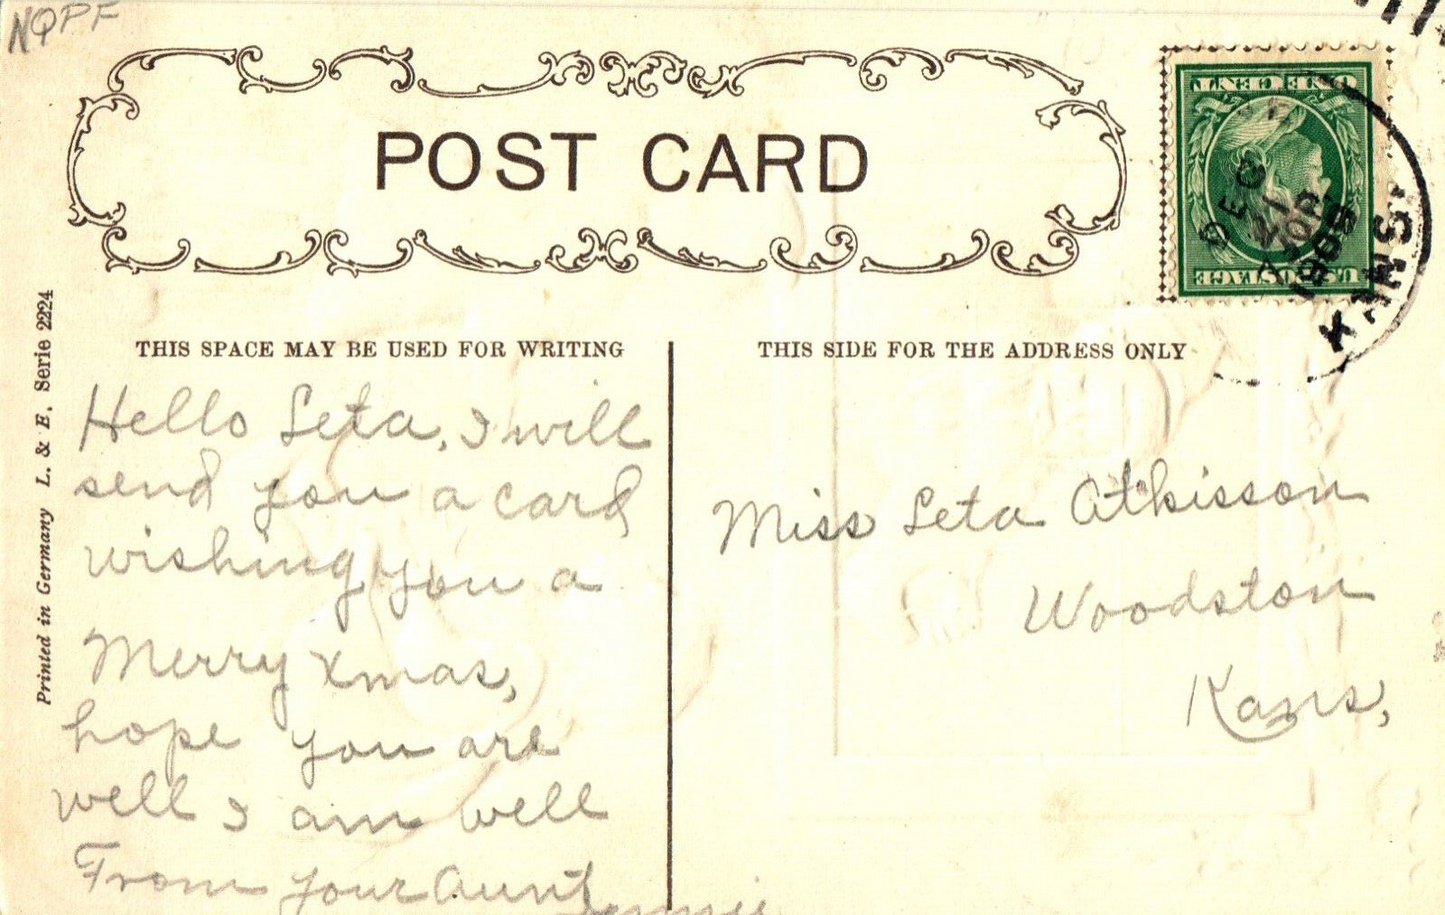 NQPF
POST CARD
ONE CENT
U.S. POSTAGE
DEC
21
1909
KANS.
THIS SPACE MAY BE USED FOR WRITING
THIS SIDE FOR THE ADDRESS ONLY
Printed in Germany L. & E. Serie 2224
Hello Leta, I will
send you a card
wishing you a
Merry Xmas,
hope you are
well I am well
From your Aunt
Miss Leta Atkisson
Woodston
Kans,